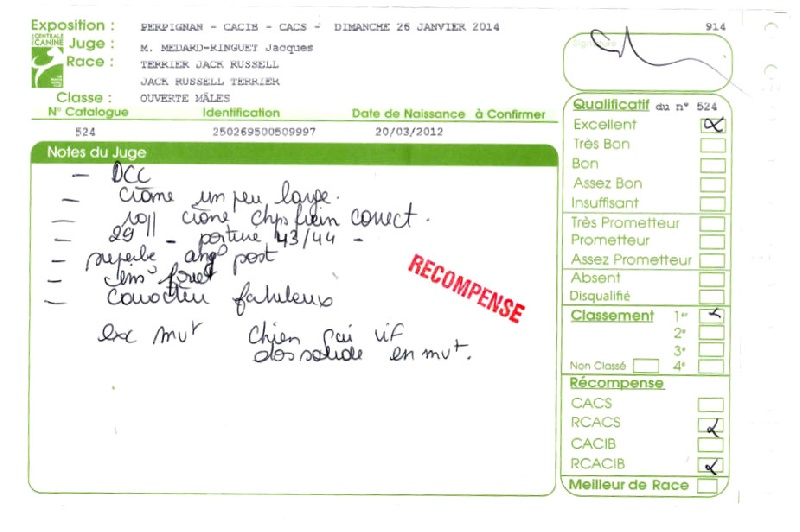 Exposition : PERPIGNAN - CACIB - CACS - DIMANCHE 26 JANVIER 2014
914
CENTRALE CANINE
Juge : M. MEDARD-RINGUET Jacques
Race : TERRIER JACK RUSSELL
JACK RUSSELL TERRIER
Classe : OUVERTE MÂLES
N° Catalogue Identification Date de Naissance à Confirmer
524 250269500509997 20/03/2012
Notes du Juge
- DCC
- crâne un peu large.
- crâne correct.
- 29 - poitrine 43/44 -
- superbe ang post
-
- caractère fabuleux
exc mvt chien gai vif
dos solide en mvt.
RECOMPENSE
Qualificatif du n° 524
Excellent
Très Bon
Bon
Assez Bon
Insuffisant
Très Prometteur
Prometteur
Assez Prometteur
Absent
Disqualifié
Classement 1er
2e
3e
Non Classé 4e
Récompense
CACS
RCACS
CACIB
RCACIB
Meilleur de Race